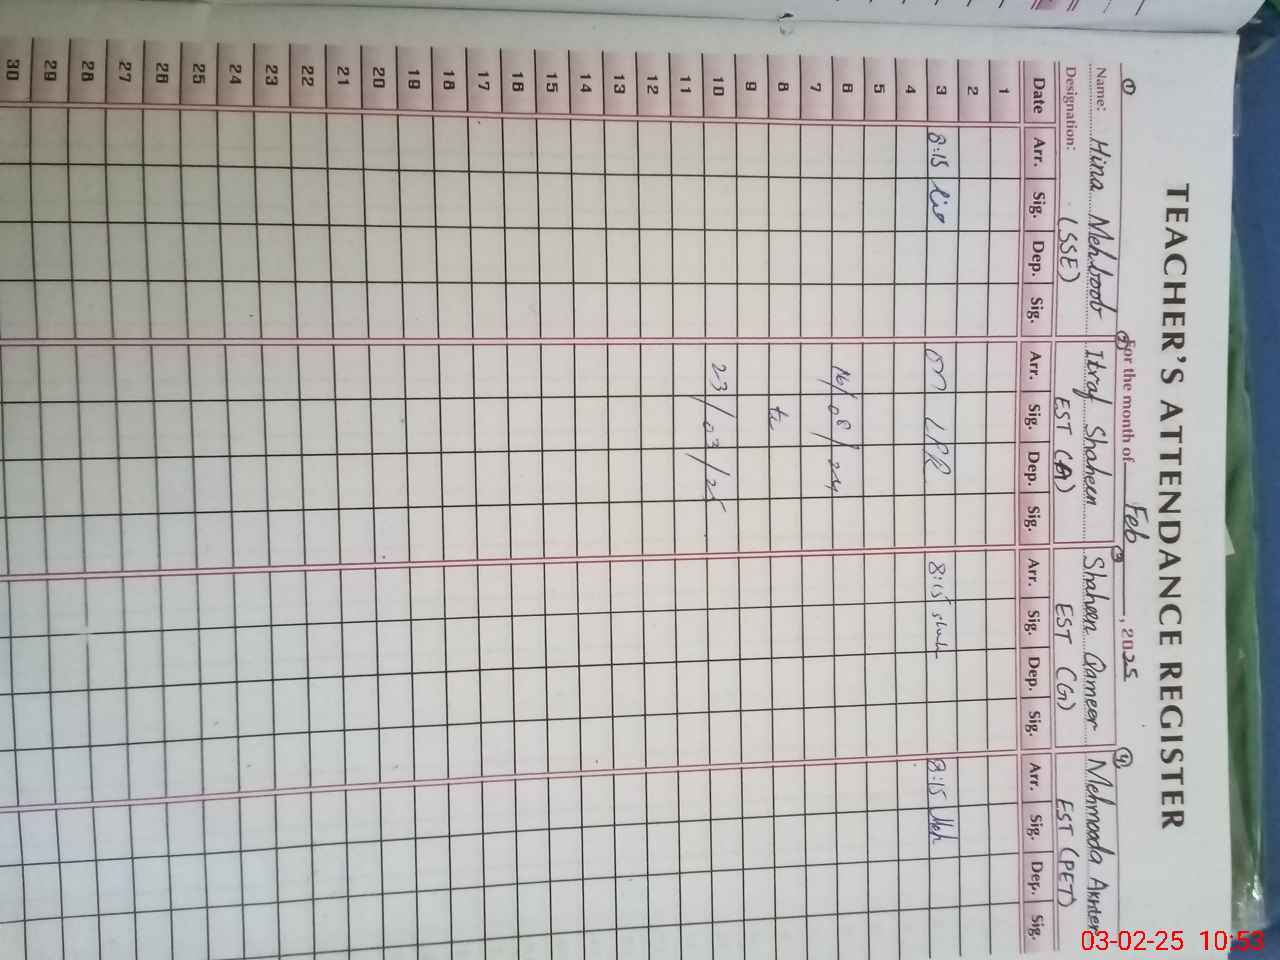 TEACHER'S ATTENDANCE REGISTER
For the month of Feb, 2025
① ② ③ ④
Name: Hina Mehboob Itraf Shaheen Shaheen Qameer Mehmooda Akhter
Designation: (SSE) EST (A) EST (G) EST (PET)
Date Arr. Sig. Dep. Sig. Arr. Sig. Dep. Sig. Arr. Sig. Dep. Sig. Arr. Sig. Dep. Sig.
1
2
3 8:15 on LPR 8:15 8:15 Meh
4
5
6 16/08/24
7
8 to
9
10 23/03/25
11
12
13
14
15
16
17
18
19
20
21
22
23
24
25
26
27
28
29
30
03-02-25 10:53